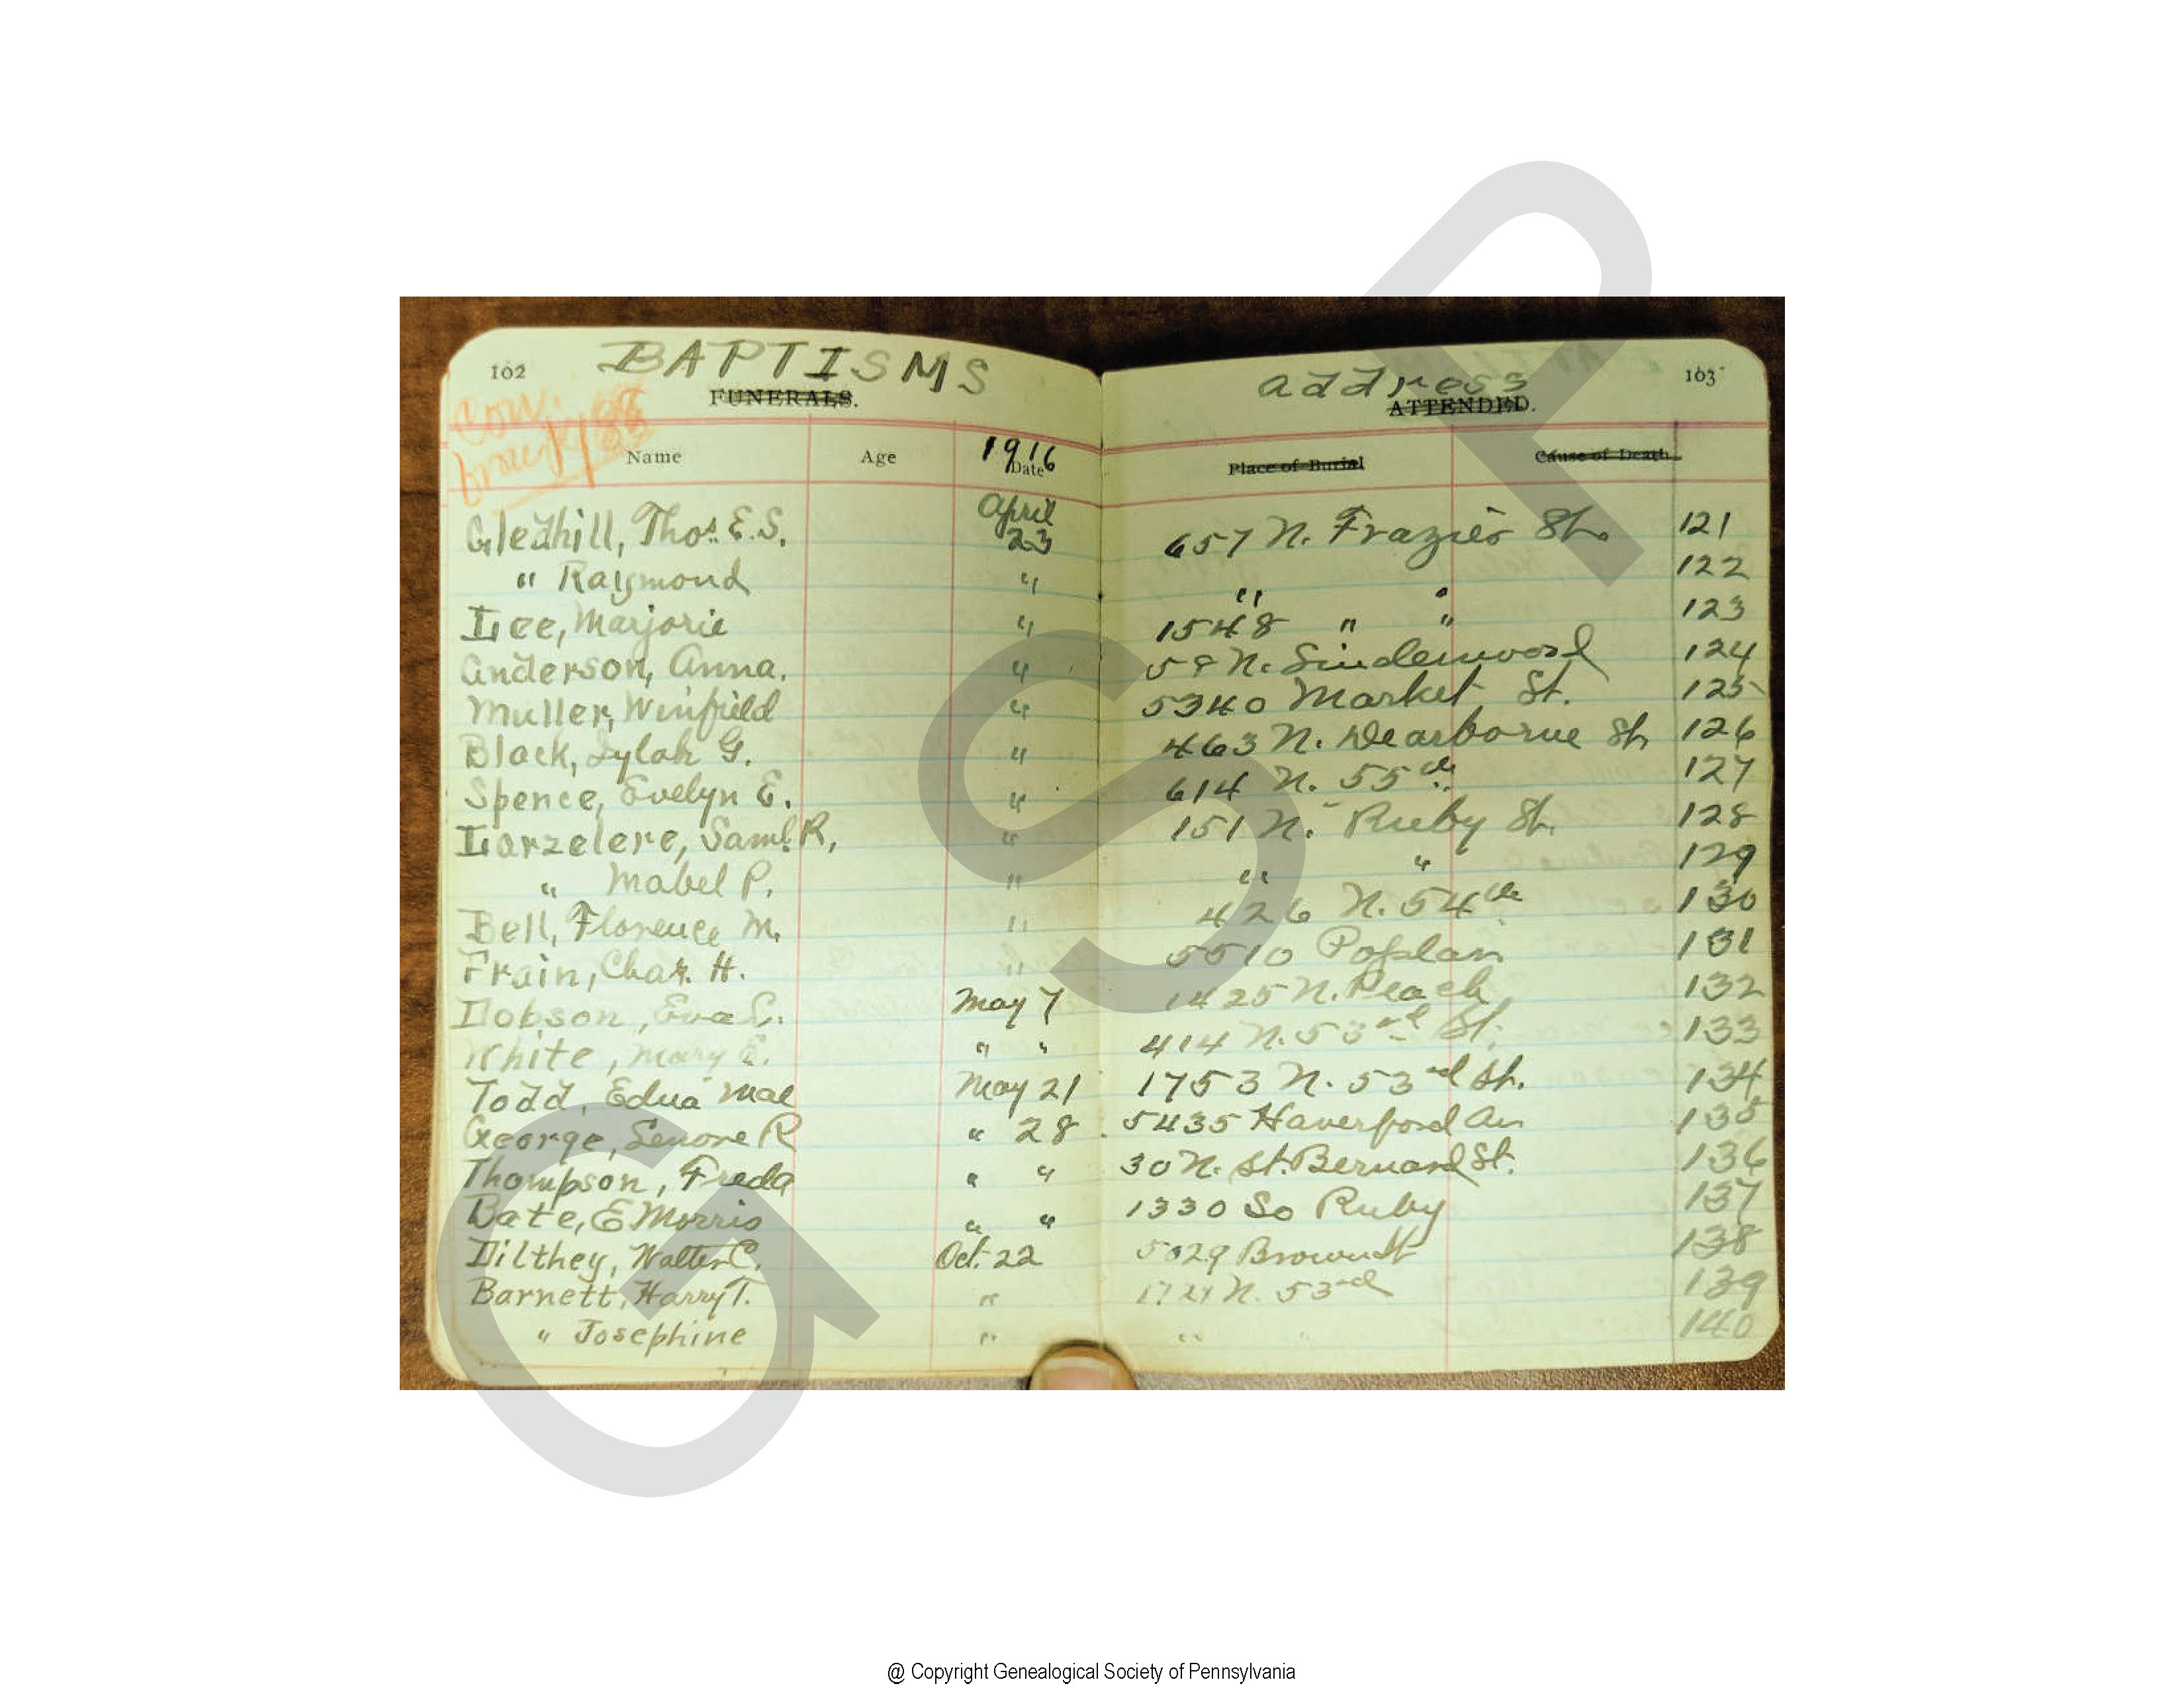 102 BAPTISMS address 103
FUNERALS. ATTENDED.
Name Age 1916 Date Place of Burial Cause of Death
Gledhill, Thos. E.S. April 23 657 N. Frazier St. 121
" Raymond " " " 122
Lee, Marjorie " 1548 " " 123
Anderson, Anna. " 59 N. Lindenwood 124
Muller, Winfield " 5340 Market St. 125
Black, Lylah G. " 463 N. Dearborne St. 126
Spence, Evelyn E. " 614 N. 55th 127
Larzelere, Saml. R. " 151 N. Ruby St. 128
" Mabel P. " " " 129
Bell, Florence M. " 426 N. 54th 130
Frain, Chas. H. " 5510 Poplar 131
Dobson, Eva C. May 7 1425 N. Peach 132
White, Mary E. " " 414 N. 53rd St. 133
Todd, Edna Mae May 21 1753 N. 53rd St. 134
George, Lenore R " 28 5435 Haverford Av 135
Thompson, Freda " " 30 N. St. Bernard St. 136
Bate, E Morris " " 1330 So Ruby 137
Dilthey, Walter C. Oct. 22 5029 Brown St 138
Barnett, Harry T. " N. 53rd 139
" Josephine " " " 140
GSP
@ Copyright Genealogical Society of Pennsylvania